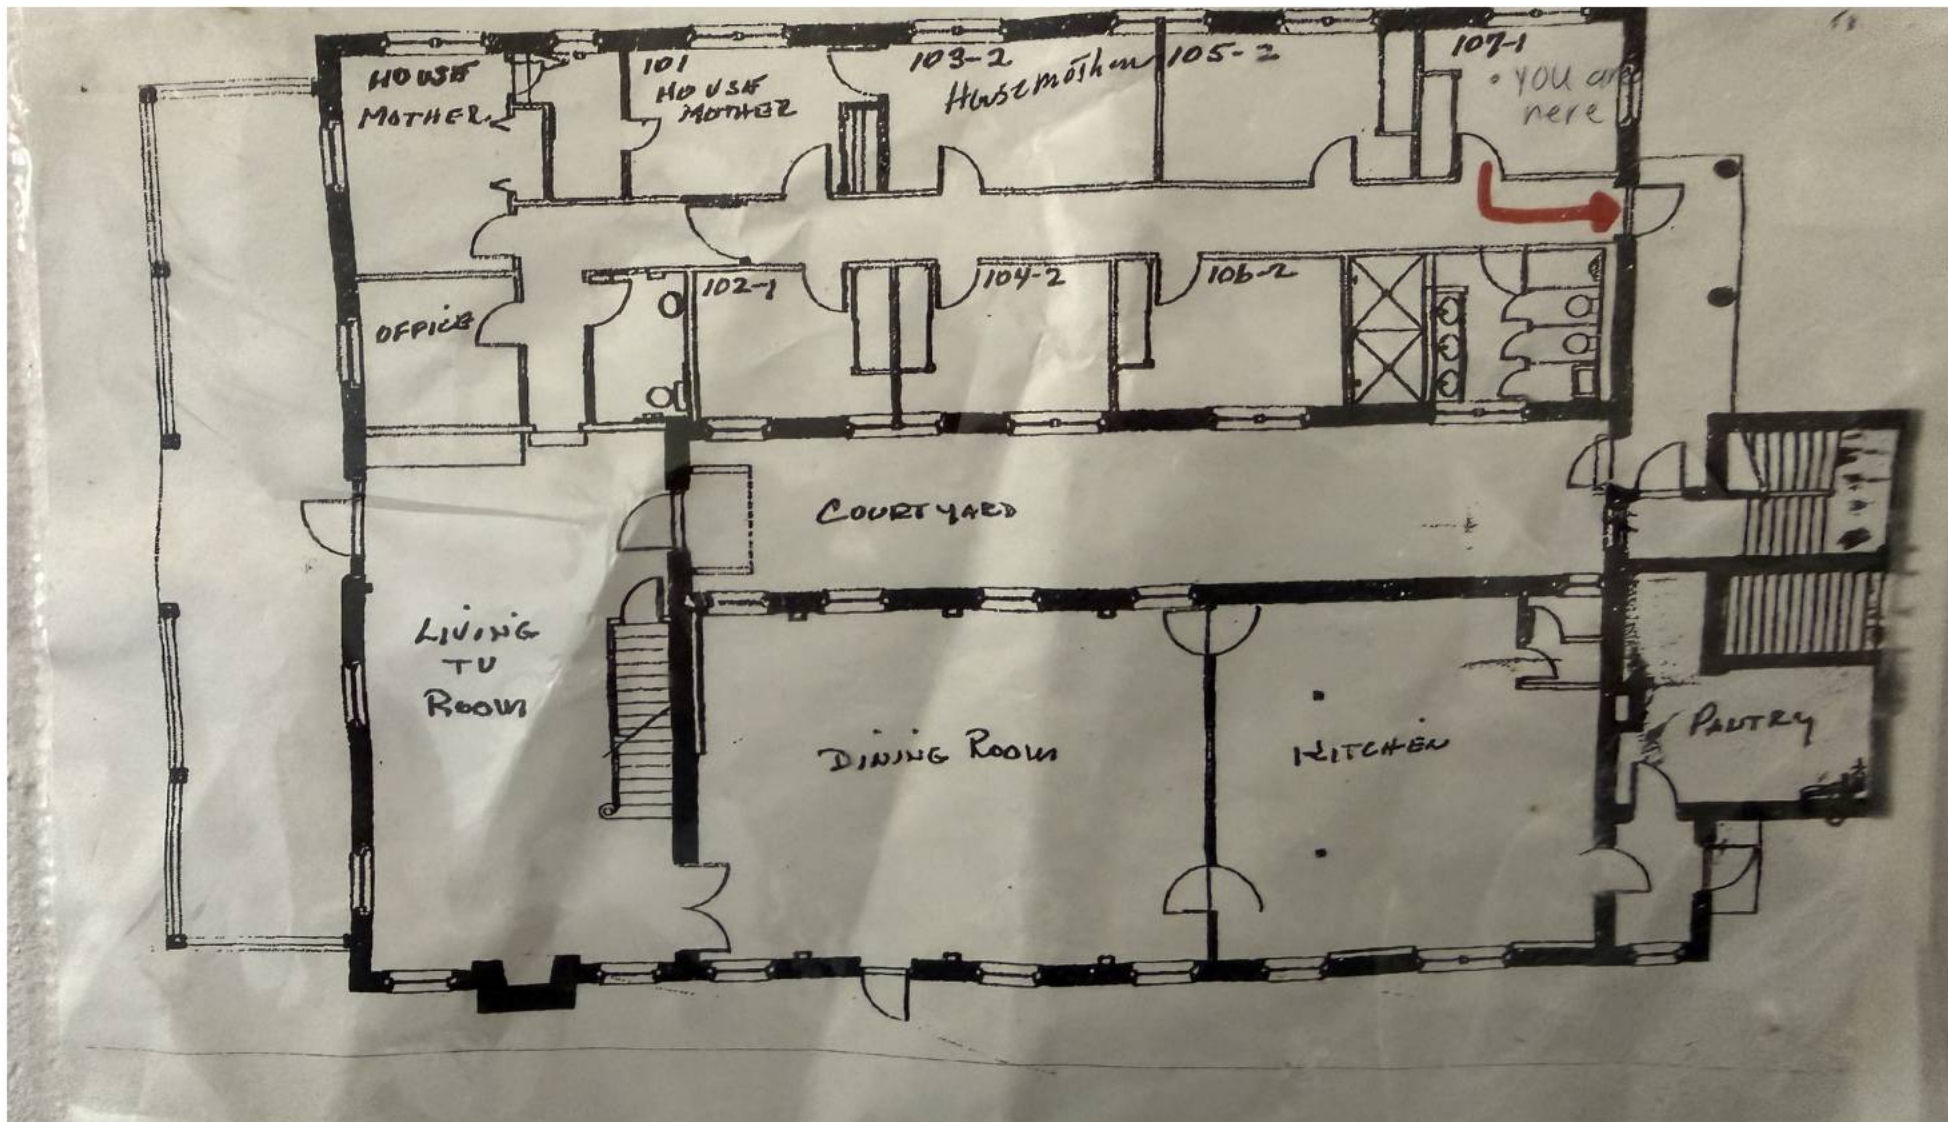 HOUSE
MOTHER
101
HOUSE
MOTHER
103-2
Housemother
105-2
107-1
• YOU are
here
OFFICE
102-1
104-2
106-2
COURTYARD
LIVING
TV
ROOM
DINING ROOM
KITCHEN
PANTRY